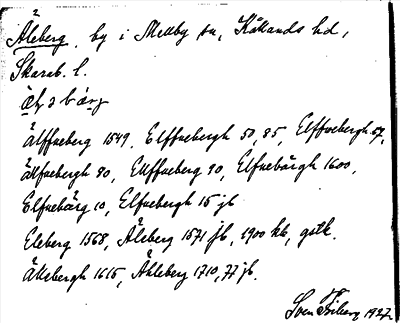 2
Åleberg, by i Mellby sn, Kållands hd,
Skarab. l.
Älffueberg 1549, Elffuebergh 50, 85, Elffuebergh 57,
Älfuebergh 80, Elffueberg 90, Elfuebärgh 1600,
Elfuebärg 10, Elfuebergh 15 jb
Eleberg 1568, Åleberg 1571 jb, 1900 kb, gstk.
Åhleberg 1710, 77 jb.
Sven Friberg 1927.